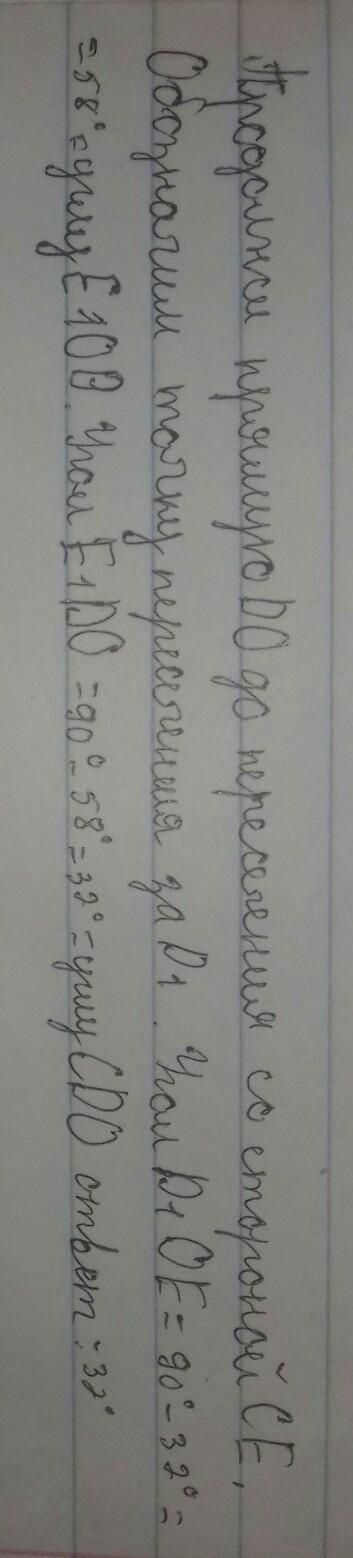 Продолжим прямую DO до пересечения со стороной CE,
Обозначим точку пересечения за D1. Угол D1OE = 90° - 32° =
= 58° = углу E1OD. Угол E1DO = 90° - 58° = 32° = углу CDO ответ: 32°